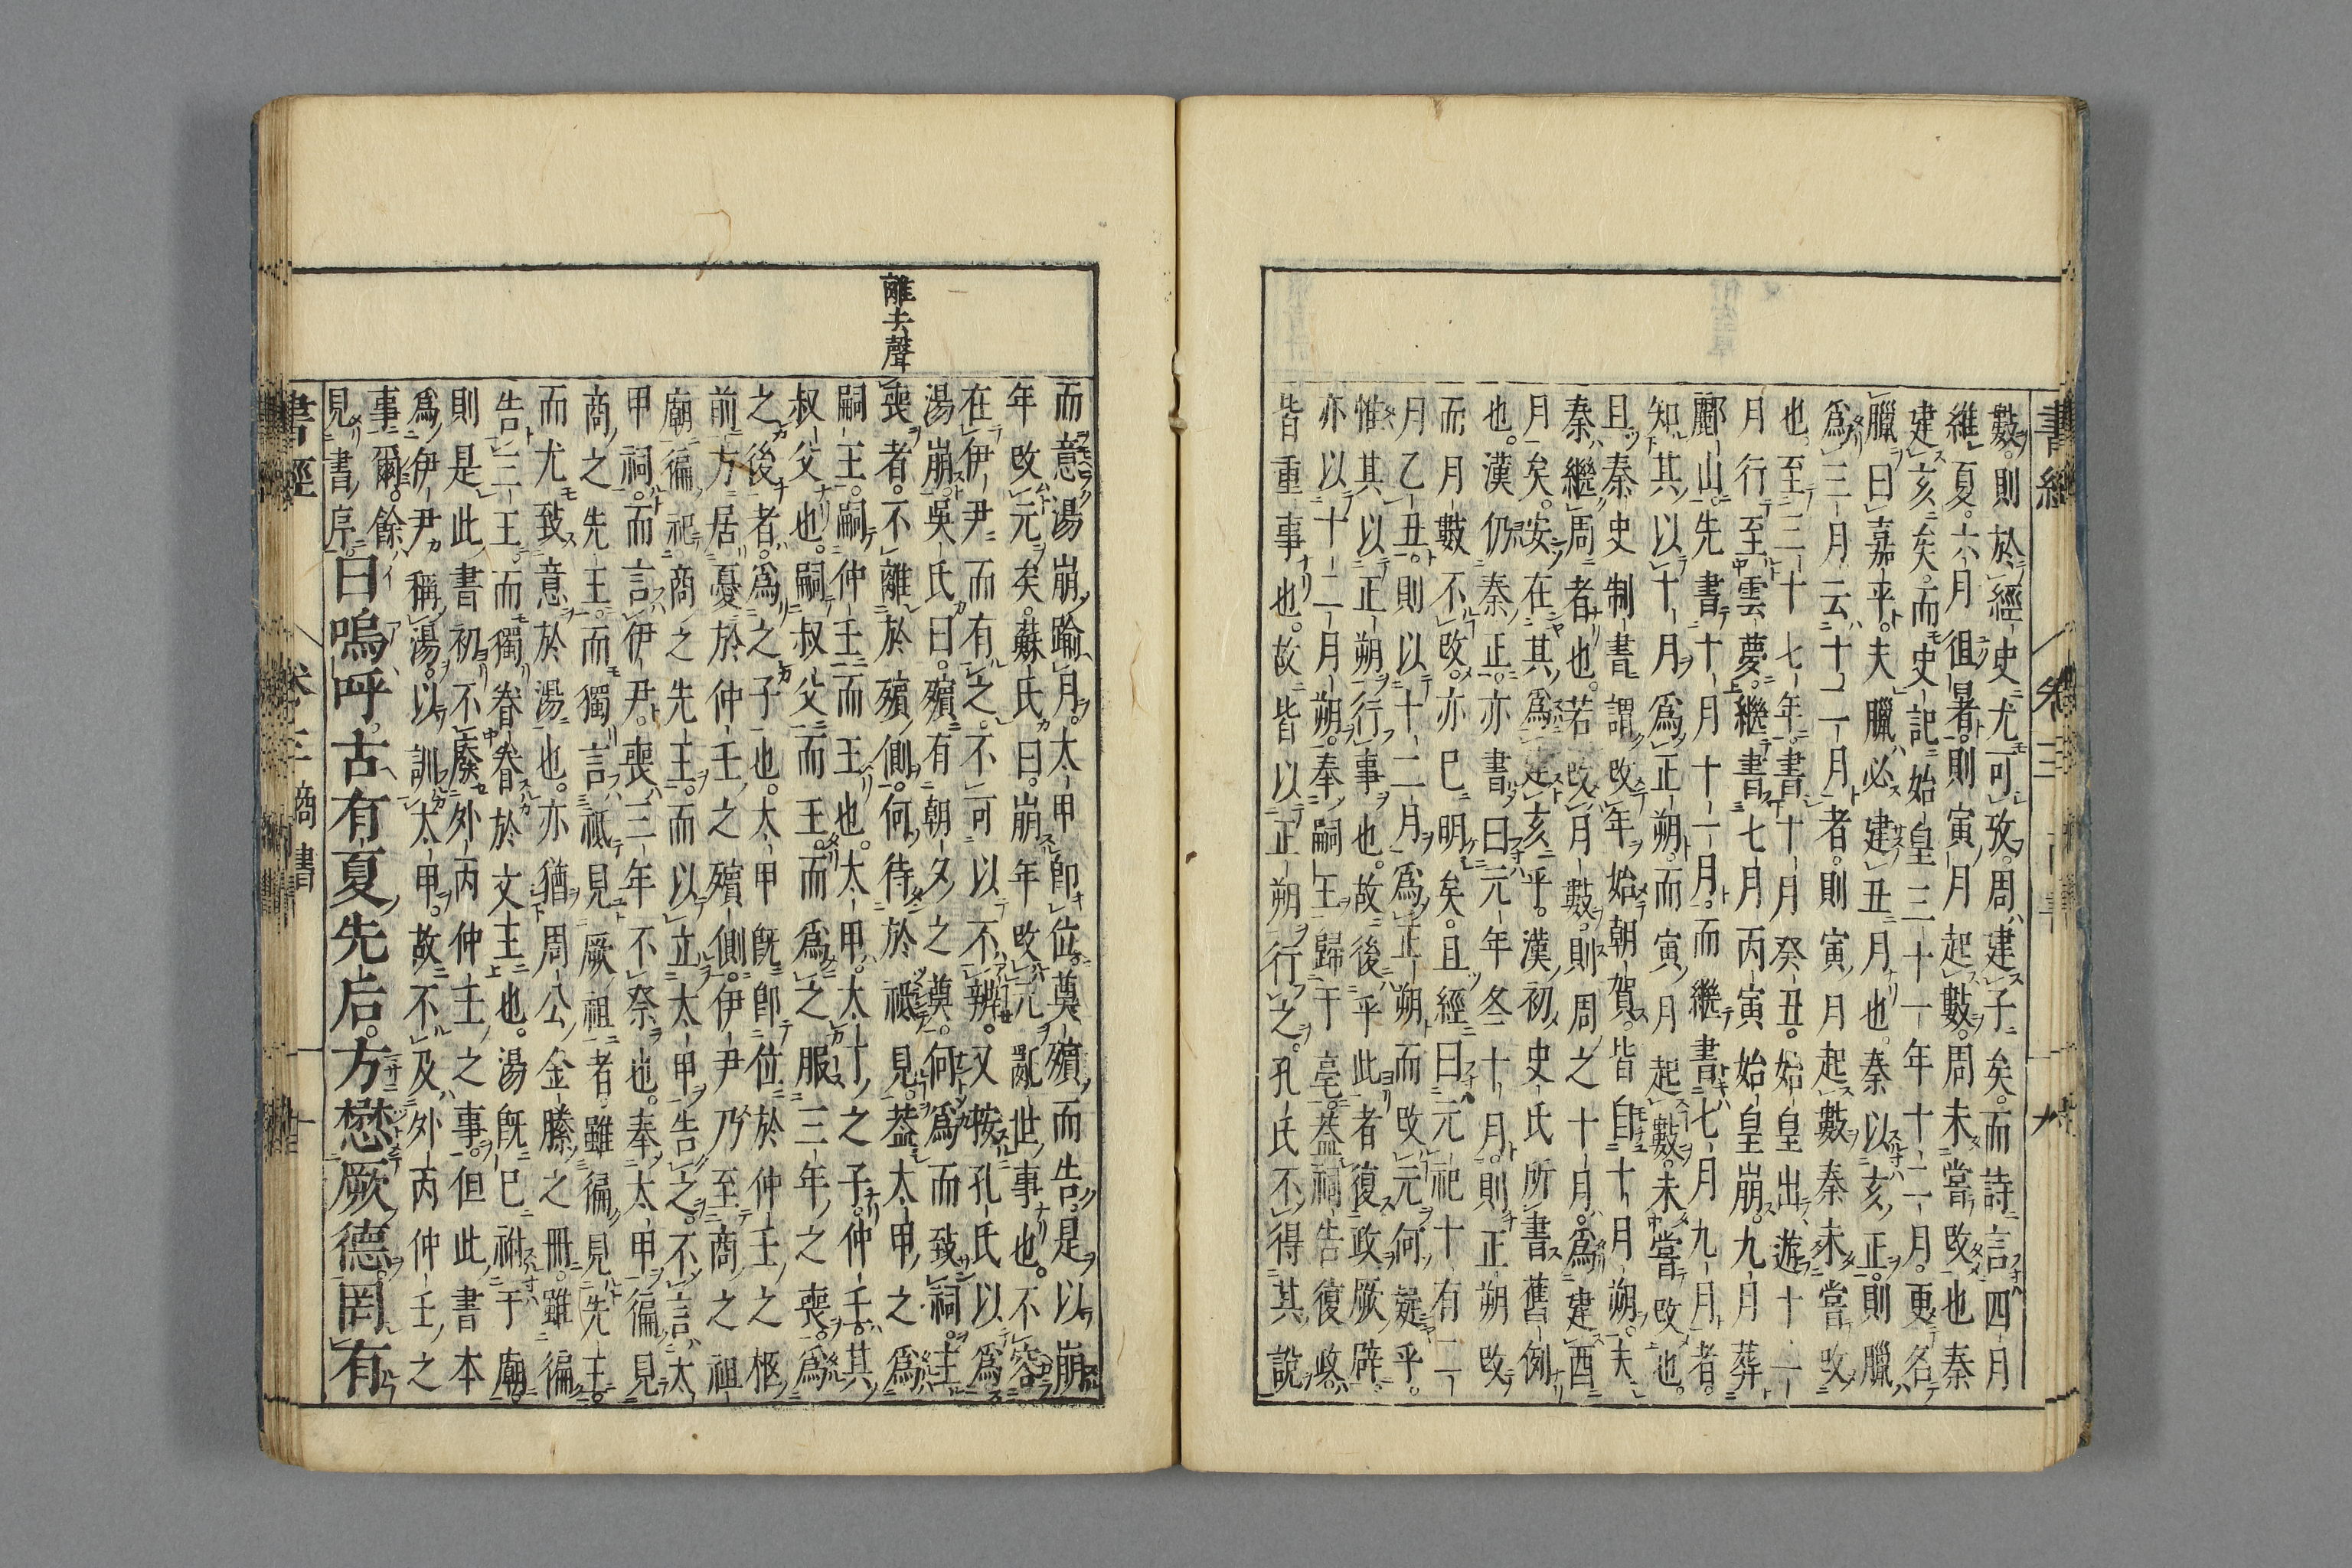 書經
數。則於經史尤可攷。周建子矣。而詩言四月
維夏。六月徂暑。則寅月起數。周未嘗改也秦
建亥矣。而史記始皇三十一年十二月。更名
臘曰嘉平。夫臘必建丑月也。秦以亥正。則臘
爲三月云十二月者。則寅月起數秦未嘗改
也。至三十七年。書十月癸丑。始皇出遊十一
月行至雲夢。繼書七月丙寅始皇崩。九月葬
酈山。先書十月十一月。而繼書七月九月者。
知其以十月爲正朔。而寅月起數。未嘗改也。
且秦史制書謂改年始朝賀。皆自十月朔。夫
秦繼周者也。若改月數。則周之十月。爲建酉
月矣。安在其爲建亥乎。漢初史氏所書舊例
也。漢仍秦正。亦書曰元年冬十月。則正朔改
而月數不改。亦已明矣。且經曰元祀十有二
月乙丑。則以十二月爲正朔而改元何疑乎。
惟其以正朔行事也。故後乎此者復政厥辟
亦以十二月朔。奉嗣王歸于亳。蓋祠告復政
皆重事也。故皆以正朔行之。孔氏不得其說
離去聲
而意湯崩踰月。太甲卽位。奠殯而告。是以崩
年改元矣。蘇氏曰。崩年改元亂世事也。不容
在伊尹而有之。不可以不辨。又按孔氏以爲
湯崩。吳氏曰。殯有朝夕之奠。何爲而致祠。主
喪者。不離於殯側。何待於祗見。蓋太甲之爲
嗣王。嗣仲壬而王也。太甲。太丁之子。仲壬其
叔父也。嗣叔父而王。而爲之服三年之喪。爲
之後者。爲之子也。太甲旣卽位於仲壬之柩
前。方居憂於仲壬之殯側。伊尹乃至商之祖
廟。徧祀商之先王。而以立太甲告之。不言太
甲祠。而言伊尹。喪三年不祭也。奉太甲徧見
商之先王。而獨言祗見厥祖者。雖徧見先王。
而尤致意於湯也。亦猶周公金縢之冊。雖徧
告三王。而獨眷眷於文王也。湯旣已祔于廟。
則是此書初不廢外丙仲壬之事。但此書本
爲伊尹稱湯。以訓太甲。故不及外丙仲壬之
事爾。餘見書序。
曰嗚呼。古有夏先后。方懋厥德。罔有
書經 卷三 商書